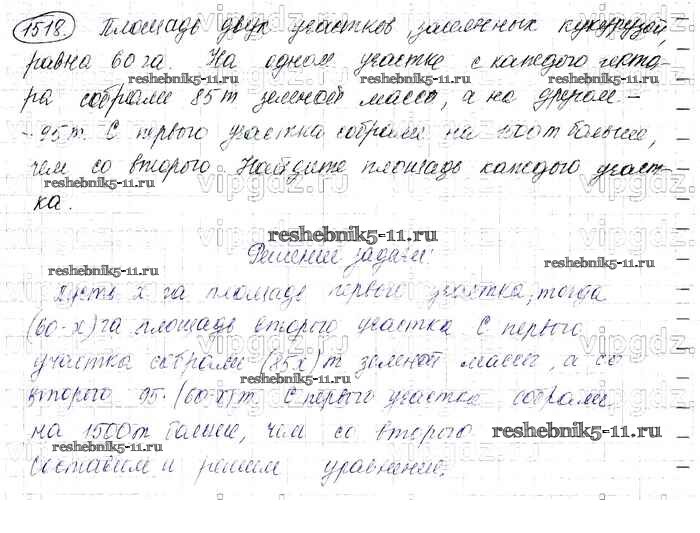 1518. Площадь двух участков занятых кукурузой,
равна 60 га. На одном участке с каждого гекта-
reshebnik5-11.ru reshebnik5-11.ru reshebnik5-11.ru
ра собрали 85 т зеленой массы, а на другом -
- 95 т. С первого участка собрали на 1500 т больше,
чем со второго. Найдите площадь каждого участ-
reshebnik5-11.ru reshebnik5-11.ru
ка.
reshebnik5-11.ru
Решение задачи:
reshebnik5-11.ru
Пусть x га площадь первого участка, тогда
(60-x) га площадь второго участка. С первого
участка собрали (85x) т зеленой массы, а со
reshebnik5-11.ru
второго 95·(60-x) т. С первого участка собрали
на 1500 т больше, чем со второго
reshebnik5-11.ru
reshebnik5-11.ru
Составим и решим уравнение.